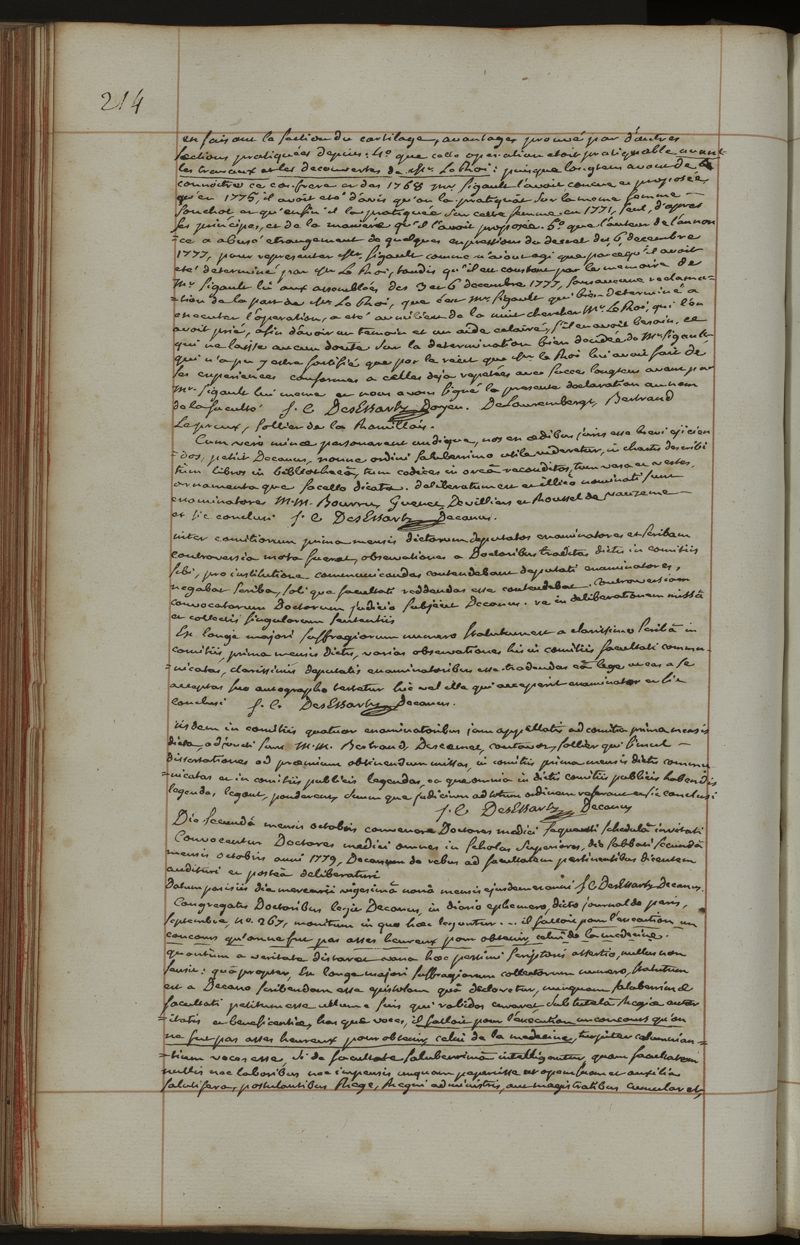 214
en faisant la section du cartilage, avantages prouvé par d'autres
sections pratiquées depuis: 4.° que cette operation etoit pratiquable avant
les travaux et les decouvertes de Mr. Le Roi: puisque longtems avant de
connoitre ce confrere et des 1768 mr Sigault l'avoit concue et proposée,
qu'en 1775, il avoit eté d'avis qu'on la pratiquat sur la meme femme
Souchot et qu'enfin il la pratiquée sur cette femme en 1777, seul, d'apres
ses principes, et de la maniere qu'il l'avoit proposée. 5.° que l'auteur de l'annon
=ce a abusé etrangement de quelques expressions du decret du 6 decembre
1777, pour representer Mr. Sigault comme n'aiant agi que parcequ'il avoit
eté determiné par Mr Le Roi, tandis qu'il est constant par le memoire de
Mr Sigault lu aux assemblées des 3 et 6 decembre 1777, sans aucune reclama=
=tion de la part de Mr Le Roi, que c'est Mr. Sigault qui bien determiné a
executer l'operation, a eté au milieu de la nuit chercher Mr. Le Roi, qui l'en
avoit prié, afin d'avoir un temoin et un aide eclairé, s'il en avoit besoin, ce
qui ne laisse aucun doute sur la determination bien decidée de Mr Sigault
qui n'a pu y etre fortifié que par le recit que Mr le Roi lui avoit fait de
ses experiences conformes a celles deja repetées avec succes longtems avant par
Mr. Sigault lui meme et nous avons signé la presente declaration au nom
de la faculté J. C DesEssartz Doyen. De Laurembergt, Bertrand
Lepreux, Sollier de la Romillais.
Cum vero minae personarent undique, nos ex aedibus juris esse brevi ejicien
=dos, petiit Decanus, nonne ordini saluberrimo utile videretur, in chartis describi
tum libros in bibliothecâ, tum codices in arcâ reconditos, tum vasa et vestes
ornamentaque sacello dicata. deliberatum est et illico nominati sunt
examinatores M.M. Bourru, Guenet, Devilliers et Roussel de Vauzeme
et sic conclusi J. C DesEssartz Decanus.
Inter comitiorum prima mensis dictorum deputatos examinatores et scribam
controversia mota fuerat, observationes a Doctoribus traditas dictis in comitiis
sibi, pro institutione communicandas contendebant deputati examinatores,
negabat scriba, soli que facultati reddendas esse contendebat. Controversiam
convocatorum Doctorum judicio subjecit Decanus. re in deliberationem missâ
et collectis singulorum sententiis
Ex longe majori suffragiorum numero statutum est a clarissimo scribâ in
comitiis, prima mensis dictis, varias observationes his in comitiis facultati commu
=nicatas, clarissimis deputatis examinatoribus esse tradendas eâ lege ut eas a se
acceptas suo autographo testetur hic vel ille qui acceperit examinator et sic
conclusi J. C. DesEssartz Decanus.
Iisdem in comitiis quatuor examinatoribus jam appellatis ad comitia prima mensis
dicta, adjuncti sunt M.M. Bertrand, Descemet, coutavoz, sollier qui simul
dissertationes ad praemium obtinendum missas, in comitiis prima mensis dictis commu
=nicatas et in comitiis publicis legendas, ea que omnia in dictis comitiis publicis habendis
legendas, legant, ponderent, suum que judicium ad totum ordinem referant et sic conclusi
J. C DesEssartz Decanus
Die secundâ mensis octobris convenere Doctores medici sequenti schedulâ invitati
Convocentur Doctores medici omnes in scholas superiores, die sabbati secundâ
mensis octobris anni 1779, Decanum de rebus ad facultatem pertinentibus dicentem
audituri et posteâ deliberaturi
Datum parisiis die mercurii vigesimâ nonâ mensis ejusdem et anni J C DesEssartz Decanus.
Congregatis Doctoribus legit Decanus, in diario ephemero, dicto journal de paris,
septembris, no. 267, monitum in quo haec leguntur... il falloit pour l'execution un
concours qu'on ne fut pas assés heureux pour obtenir, celui de la medecine.
quantum a veritate distaret vana haec pessimi scriptoris assertio, nullus non
sensit: quâ propter, Ex longe majori suffragiorum collectorum numero, statutum
est a Decano scribendam esse epistolam quâ declaretur, nunquam saluberrimae
facultati petitum esse ut unus e suis qui validos curaret sub tutelâ Regia autor
=itatis et beneficentiae, has que voces, il falloit pour l'execution un concours qu'on
ne fut pas assés heureux pour obtenir, celui de la medecine, turpiter calumnian=
=tium voces esse, si de facultate saluberrimâ intelligantur, quam facultatem
nullis nec laboribus nec impensis unquam pepercisse ut opem suam et auxilia
salutifera, postulantibus Rege, Regni administris, aut magistratibus cumularet,